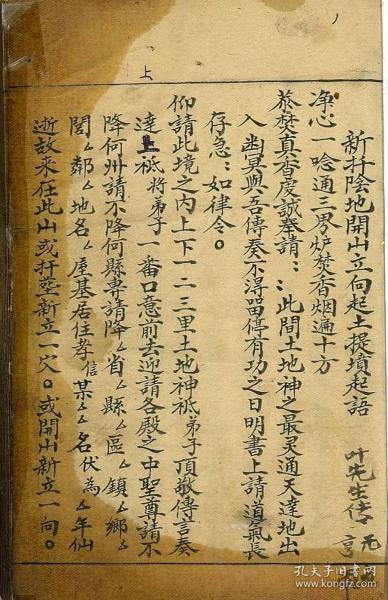 新扦陰地開山立向起土提墳起語
叶先生傳 元亨
净心一唸通三界炉焚香烟遍十方
焚真香虔誠舉請：：此間土地神之最灵通天達地出
入幽冥與吾傳奏不淂畄停有功之日明書上請道氣長
存急：如律令。
仰請此境之内上下一二三里土地神祗弟子頂敬傳言奏
達上祗將弟子一番口意前去迎請各殿之中聖尊請不
降何州請不降何縣專請降厶省厶縣厶區厶鎮厶鄉厶
閭厶鄰厶地名厶屋基居住孝信某厶厶名伏為厶年仙
逝故来在此山或扦塟新立一穴。或開山新立一向。
上
孔夫子旧书网